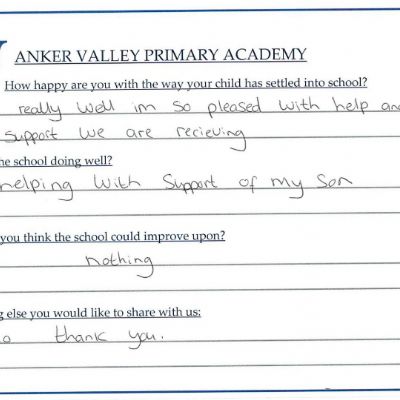 ANKER VALLEY PRIMARY ACADEMY
How happy are you with the way your child has settled into school?
really well im so pleased with help and
support we are recieving
the school doing well?
helping with support of my son
you think the school could improve upon?
nothing
else you would like to share with us:
thank you.